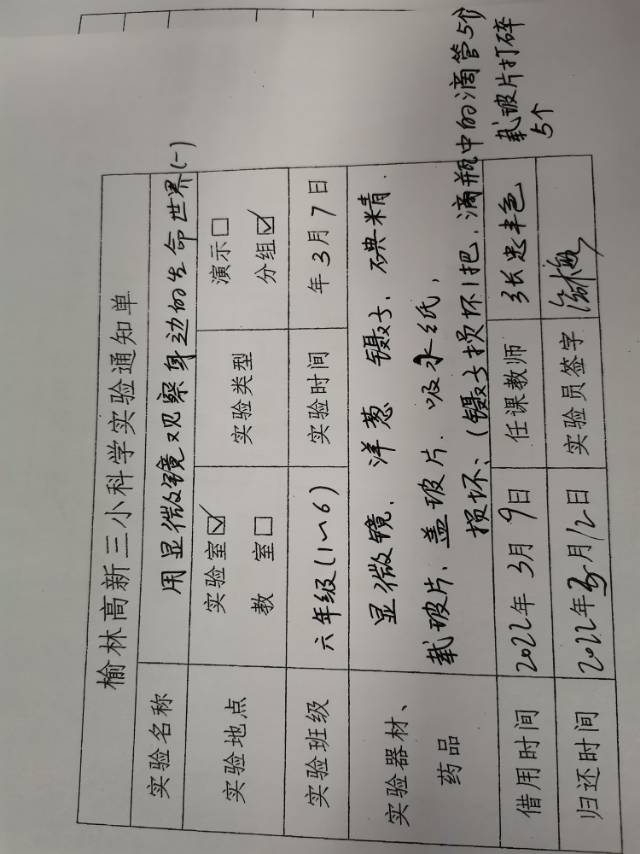 榆林高新三小科学实验通知单
实验名称 用显微镜观察身边的生命世界(一)
实验地点 实验室☑ 实验类型 演示□
教 室□ 分组☑
实验班级 六年级(1~6) 实验时间 年3月7日
实验器材、 显微镜、洋葱 镊子、碘精.
药品 载玻片、盖玻片.吸水纸,
损坏、(镊子损坏1把,滴瓶中的滴管5个
载玻片打碎
5个
借用时间 2022年3月9日 任课教师 张忠丰色
归还时间 2022年3月12日 实验员签字